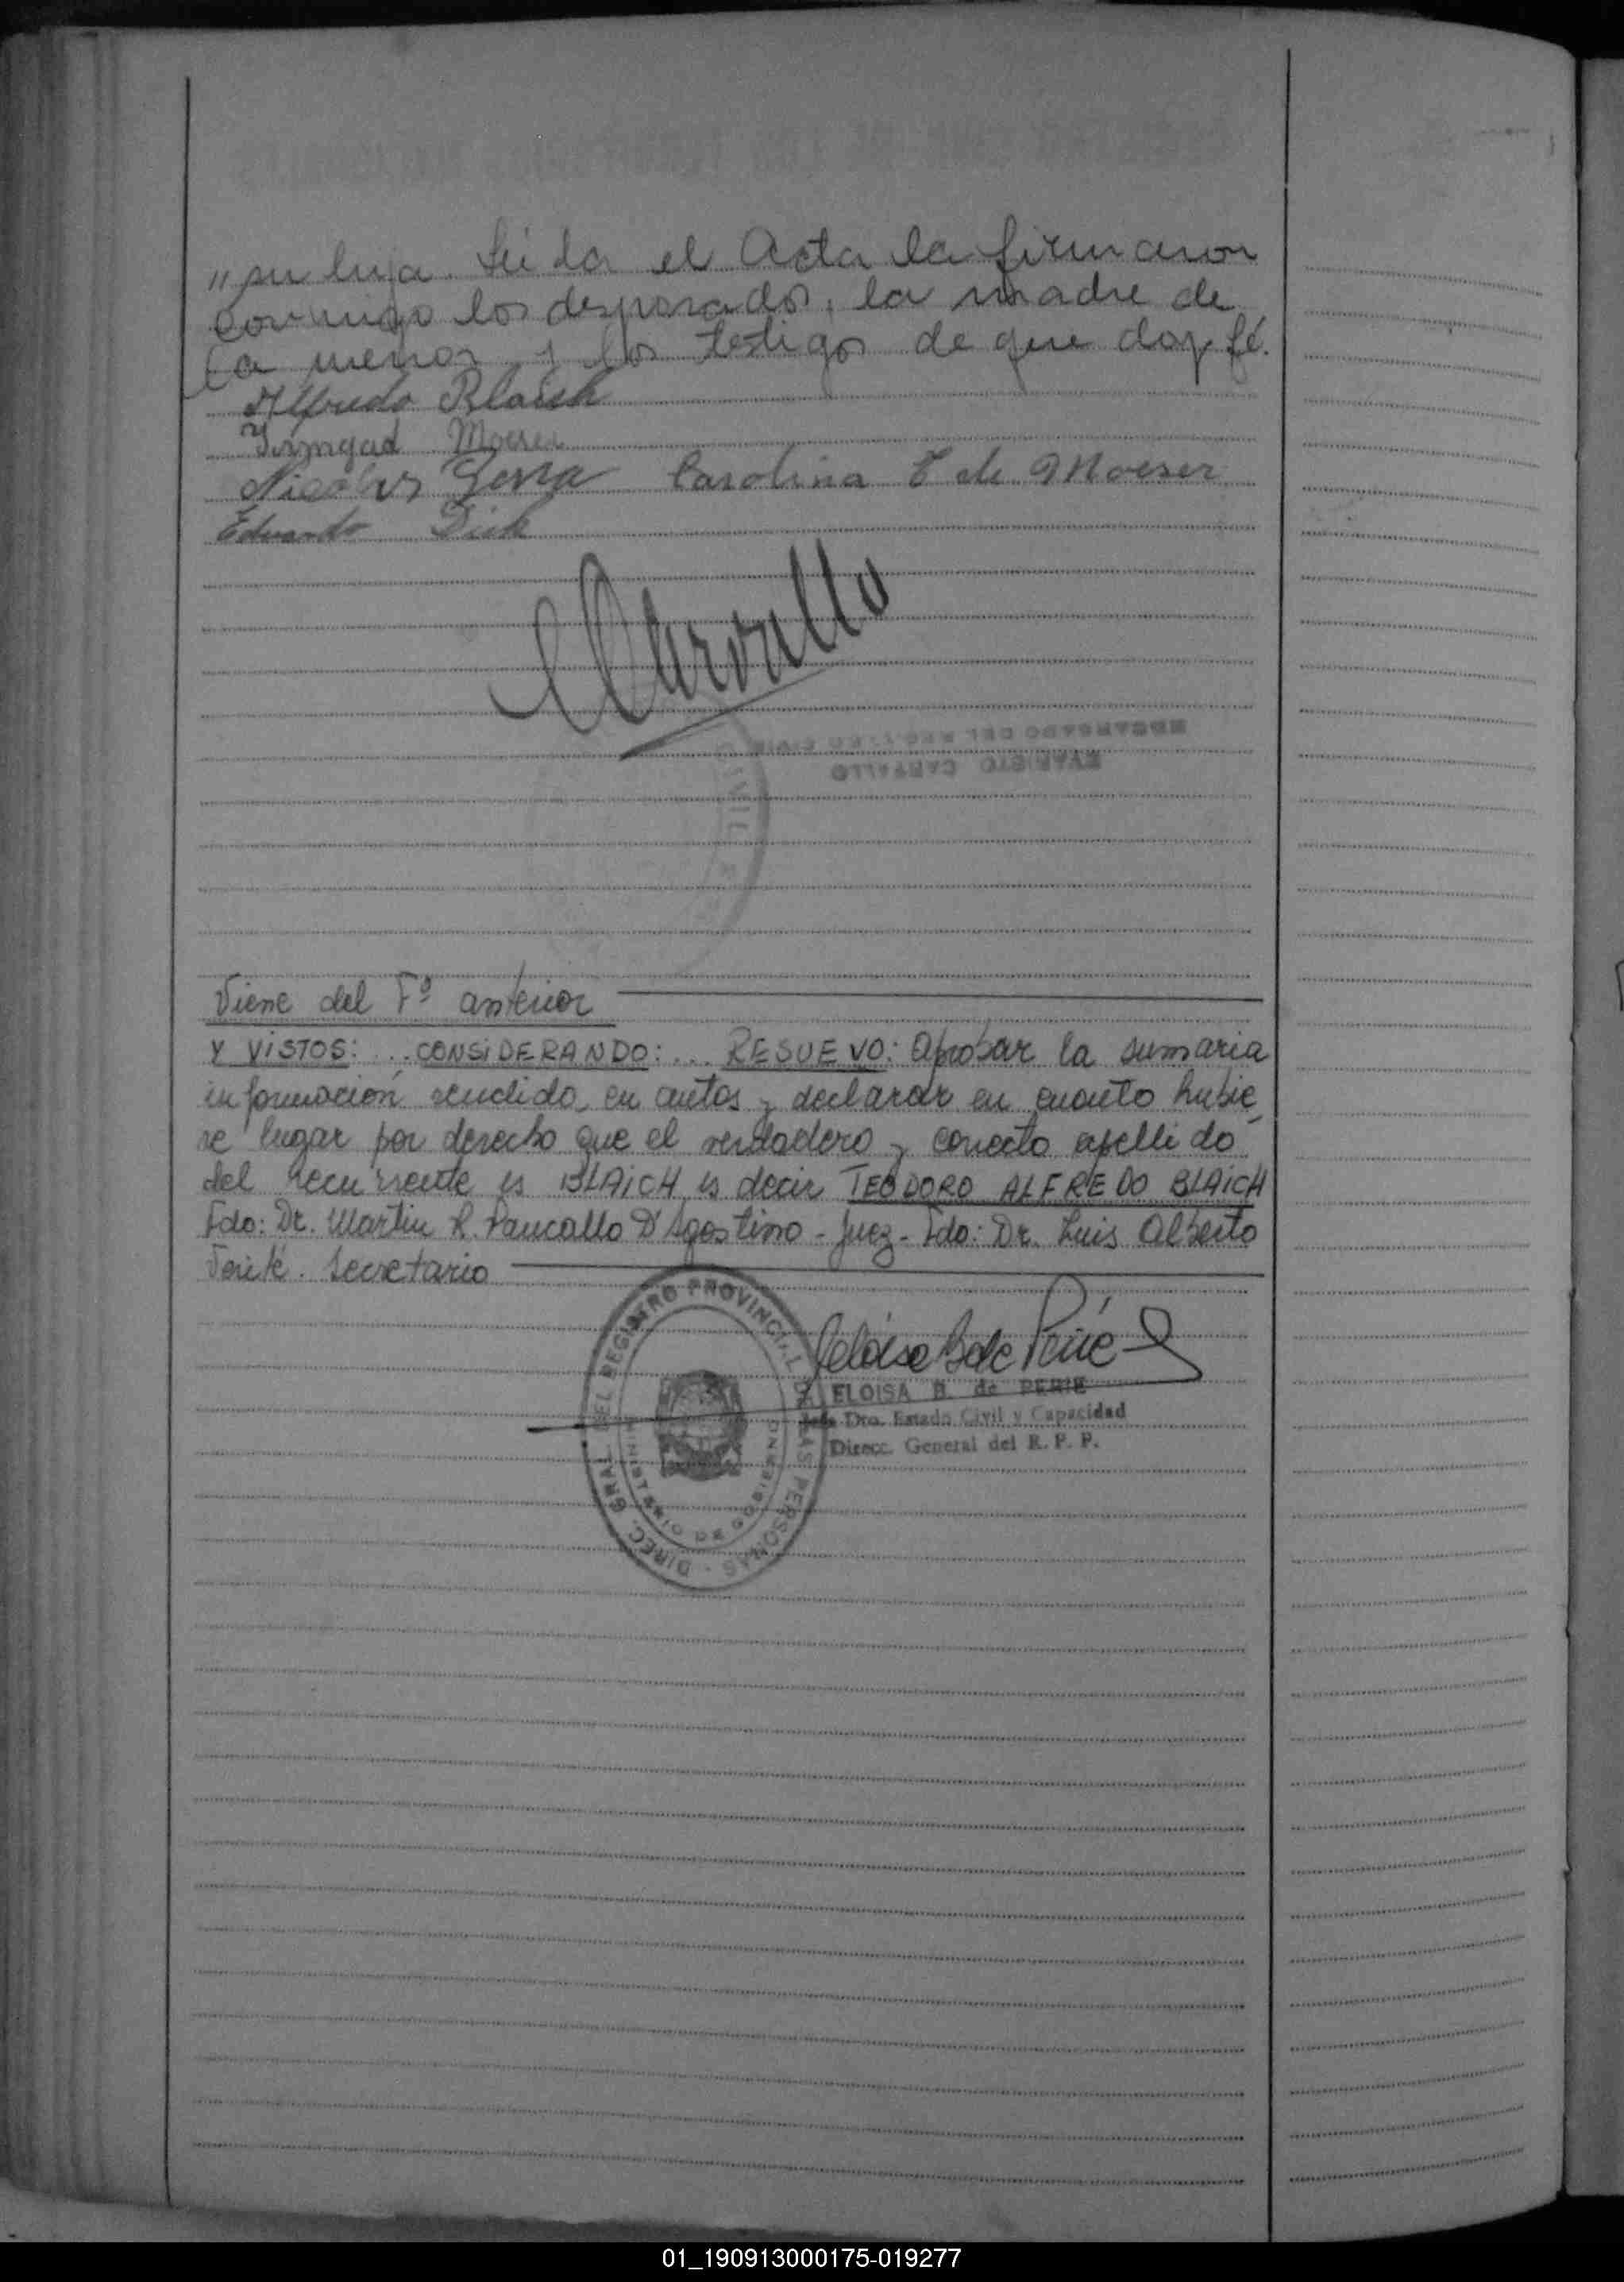 " su hija. Leída el Acta la firmaron
conmigo los desposados, la madre de
la menor y los testigos de que doy fé.
Alfredo Blaich
Irmgad Moeser
Nicolas Carolina de Moeser
Eduardo Dick
ENCARGADO DEL REGISTRO CIVIL
EVARISTO CARVALLO
Viene del Fº anterior
Y VISTOS: ... CONSIDERANDO: ... RESUEVO: Aprobar la sumaria
información rendida en autos y declarar en cuanto hubie-
re lugar por derecho que el verdadero y correcto apellido
del recurrente es BLAICH es decir TEODORO ALFREDO BLAICH
Fdo: Dr. Martin R. D'Agostino - Juez - Fdo: Dr. Luis Alberto
Secretario
DIREC. GRAL. DEL REGISTRO PROVINCIAL DE LAS PERSONAS
MINISTERIO DE GOBIERNO
ELOISA B. de PERIE
Jefe Dto. Estado Civil y Capacidad
Direcc. General del R. P. P.
01_190913000175-019277